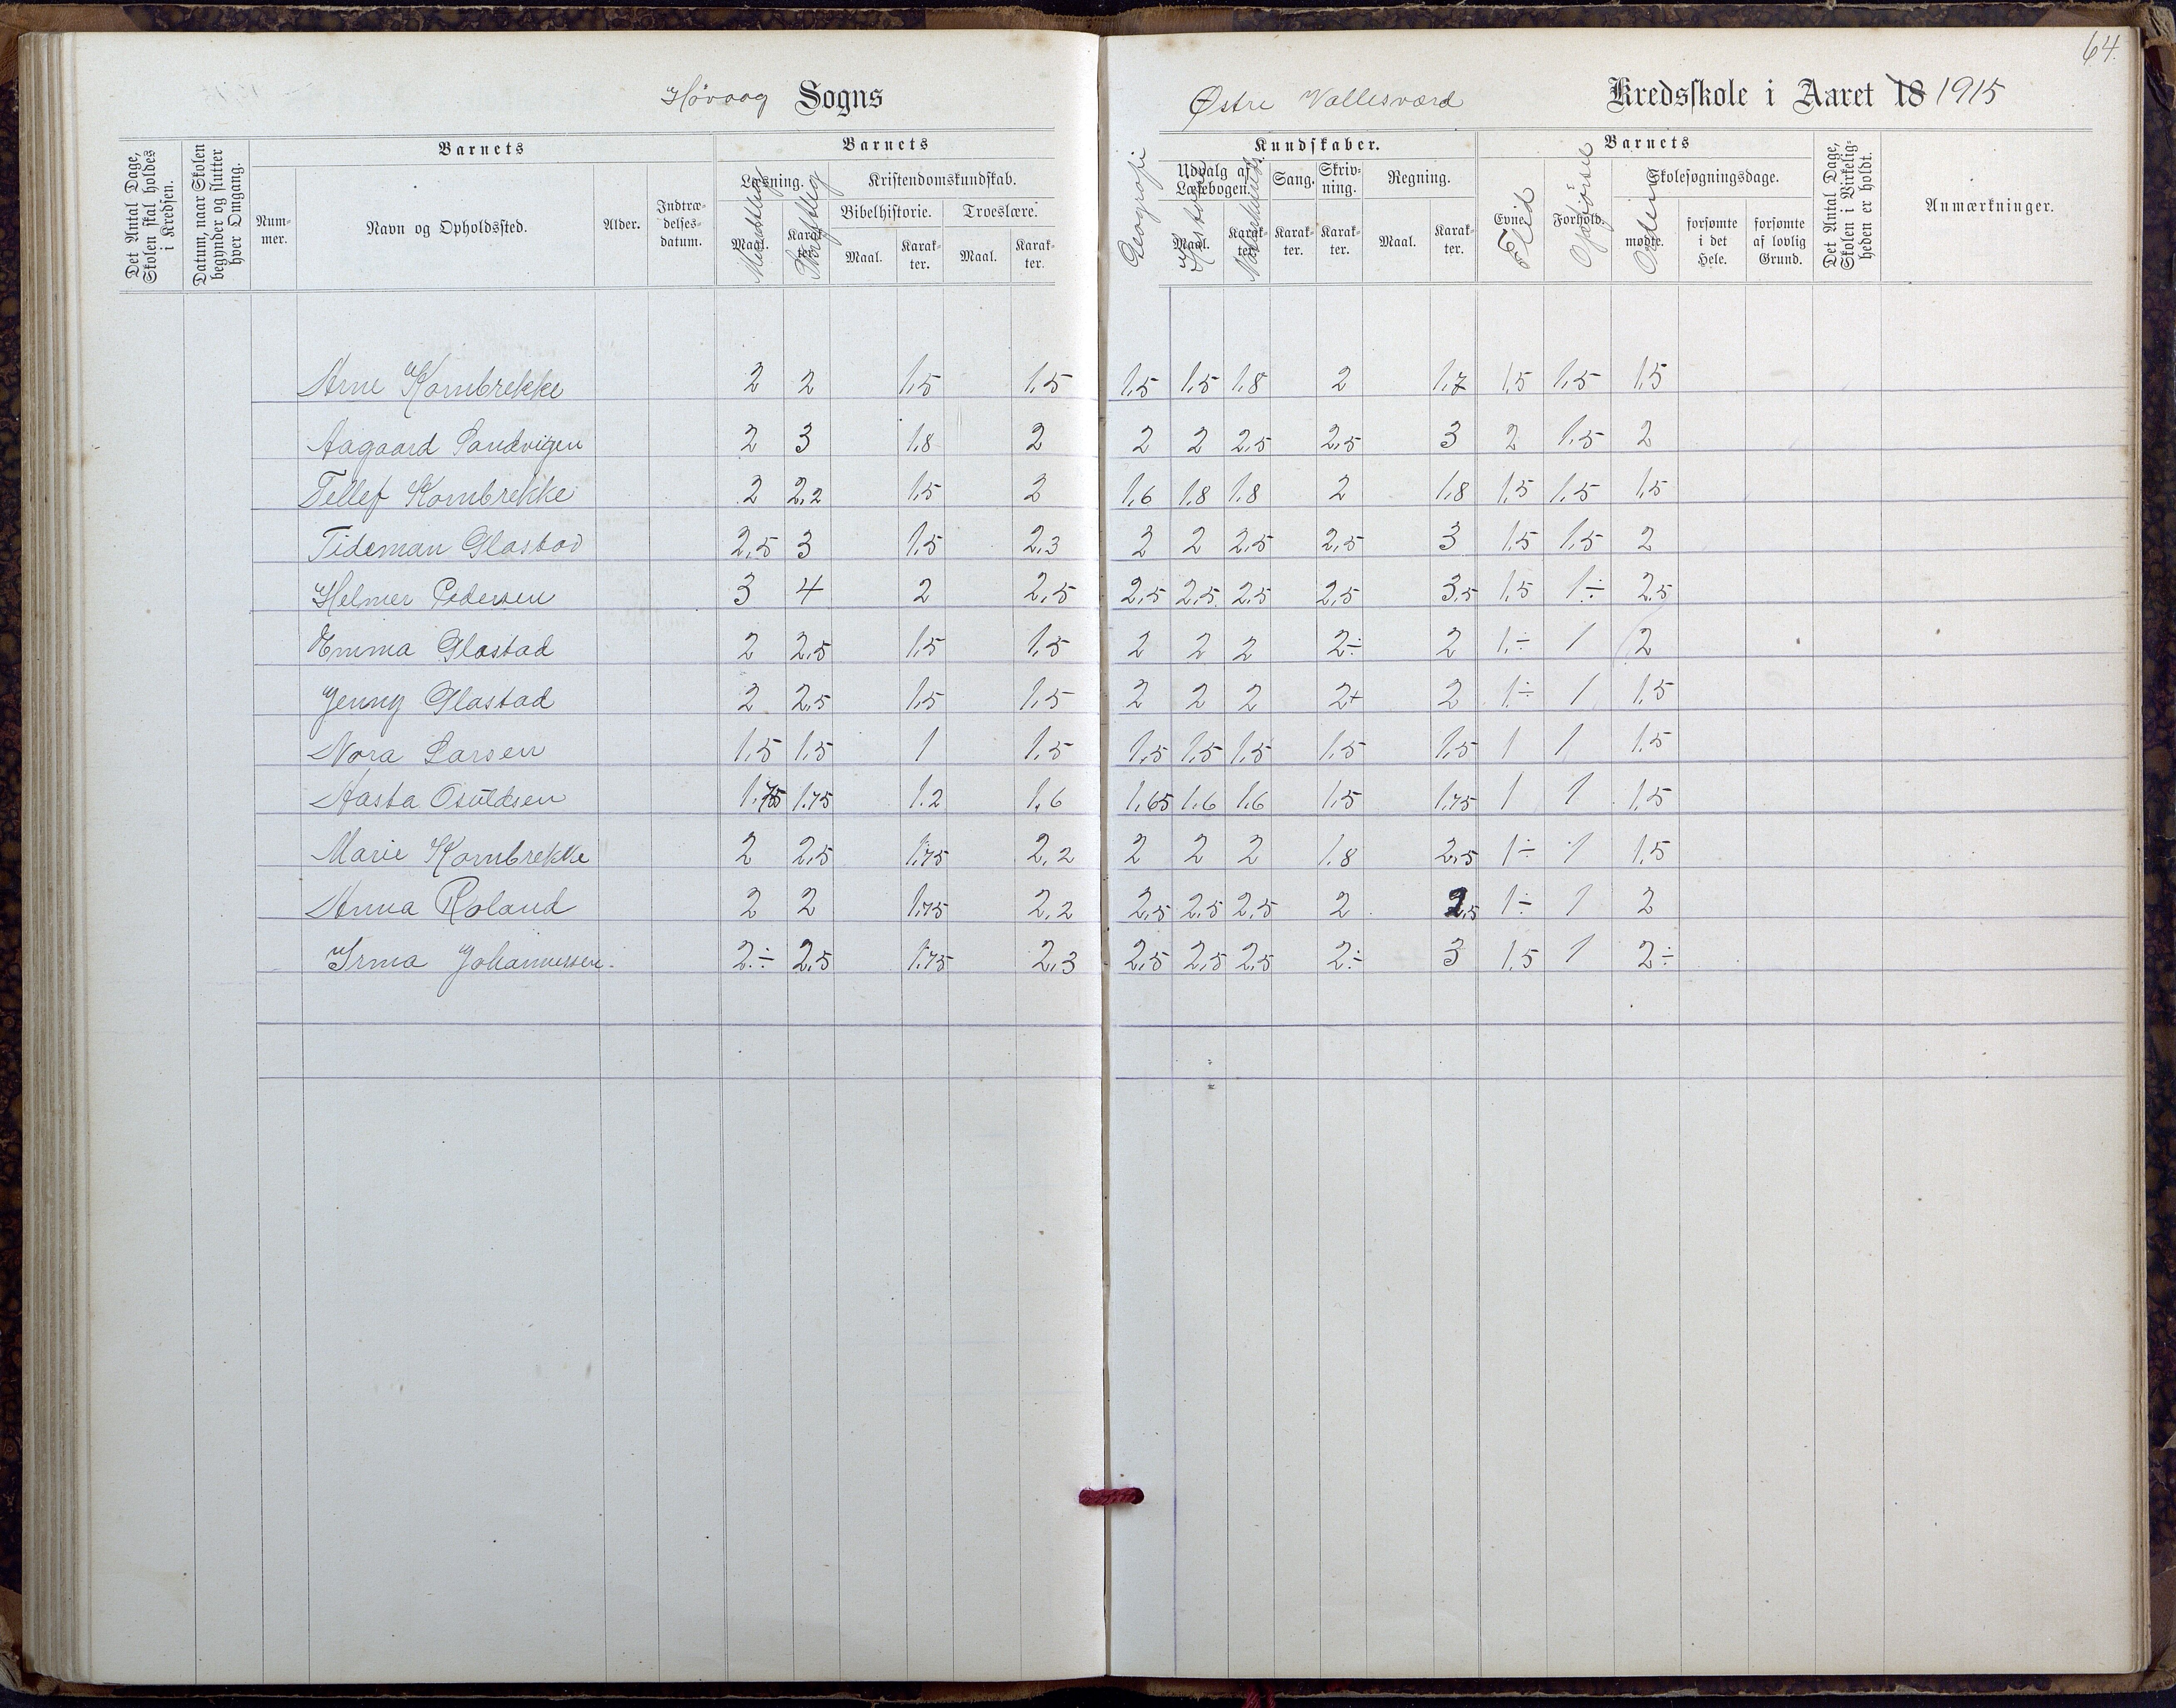 64.
Høvaag Sogns
Østre Vallesværd Kredsskole i Aaret 18 1915
Det Antal Dage, Skolen skal holdes i Kredsen.
Datum, naar Skolen begynder og slutter hver Omgang.
Barnets
Barnets
Num-mer.
Navn og Opholdssted.
Alder.
Indtræ-delses-datum.
Læsning.
Kristendomskundskab.
Bibelhistorie.
Troeslære.
Maal. Mundtlig
Karak-ter. Skriftlig
Maal.
Karak-ter.
Maal.
Karak-ter.
Geografi
Kundskaber.
Barnets
Udvalg af Læsebogen.
Sang.
Skriv-ning.
Regning.
Maal. Historie
Karak-ter.
Karak-ter.
Karak-ter.
Maal.
Karak-ter.
Evne. Flid
Forhold. Opførsel
Skolesøgningsdage.
mødte. Orden
forsømte i det Hele.
forsømte af lovlig Grund.
Det Antal Dage, Skolen i Virkelig-heden er holdt.
Anmærkninger.
Arne Kornbrekke 2 2 1,5 1,5 1,5 1,5 1,8 2 1,7 1,5 1,5 1,5
Aagaard Sandvigen 2 3 1,8 2 2 2 2,5 2,5 3 2 1,5 2
Tellef Kornbrekke 2 2,2 1,5 2 1,6 1,8 1,8 2 1,8 1,5 1,5 1,5
Tideman Glastad 2,5 3 1,5 2,3 2 2 2,5 2,5 3 1,5 1,5 2
Helmer Pedersen 3 4 2 2,5 2,5 2,5 2,5 2,5 3,5 1,5 1÷ 2,5
Emma Glastad 2 2,5 1,5 1,5 2 2 2 2÷ 2 1÷ 1 2
Jenny Glastad 2 2,5 1,5 1,5 2 2 2 2+ 2 1÷ 1 1,5
Nora Larsen 1,5 1,5 1 1,5 1,5 1,5 1,5 1,5 1,5 1 1 1,5
Aasta Osuldsen 1,75 1,75 1,2 1,6 1,65 1,6 1,6 1,5 1,75 1 1 1,5
Marie Kornbrekke 2 2,5 1,75 2,2 2 2 2 1,8 2,5 1÷ 1 1,5
Anna Roland 2 2 1,75 2,2 2,5 2,5 2,5 2 2,5 1÷ 1 2
Irma Johannessen. 2÷ 2,5 1,75 2,3 2,5 2,5 2,5 2÷ 3 1,5 1 2÷